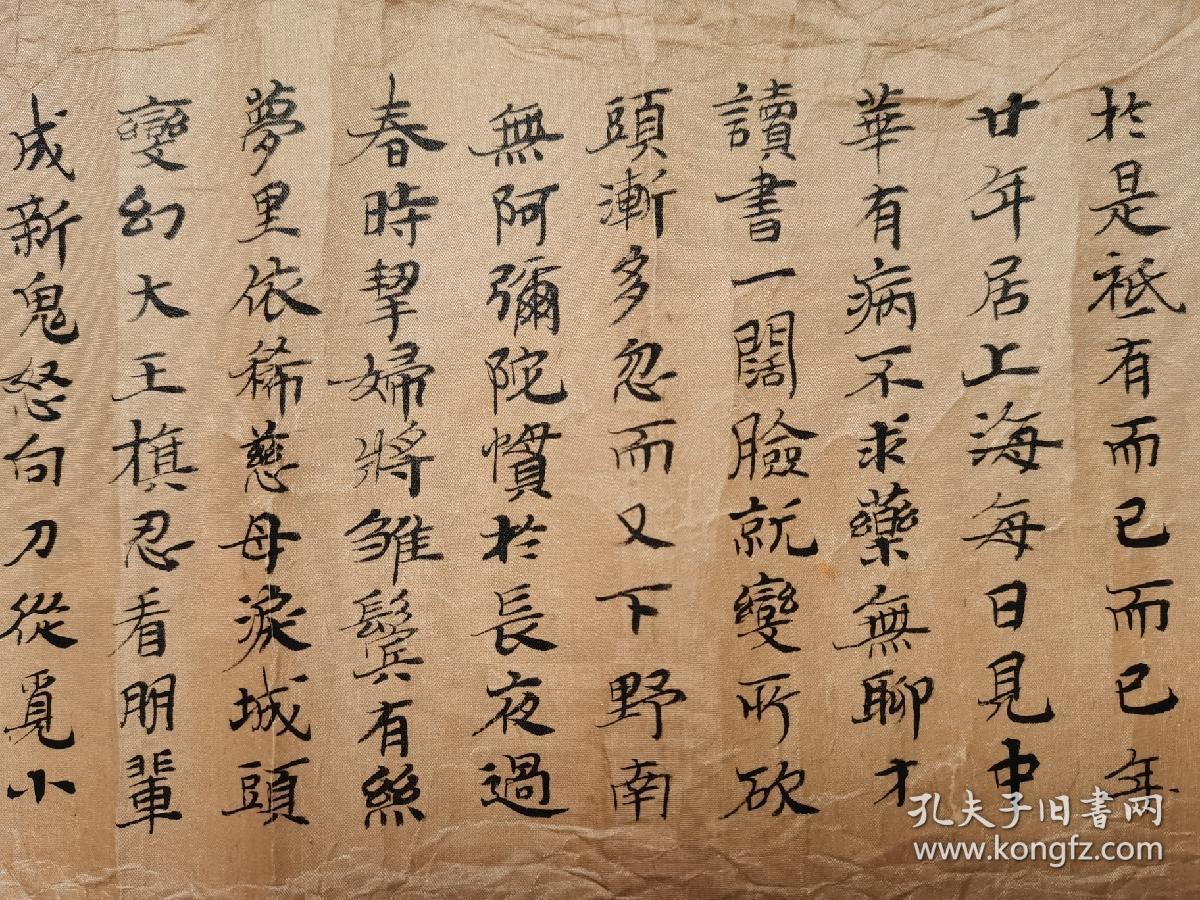 於是祗有而已而已年
廿年居上海每日見中
華有病不求藥無聊才
讀書一闊臉就變所砍
頭漸多忽而又下野南
無阿彌陀慣於長夜過
春時挈婦將雏鬓有絲
夢里依稀慈母淚城頭
變幻大王旗忍看朋輩
成新鬼怒向刀從覓小
孔夫子旧書网
www.kongfz.com